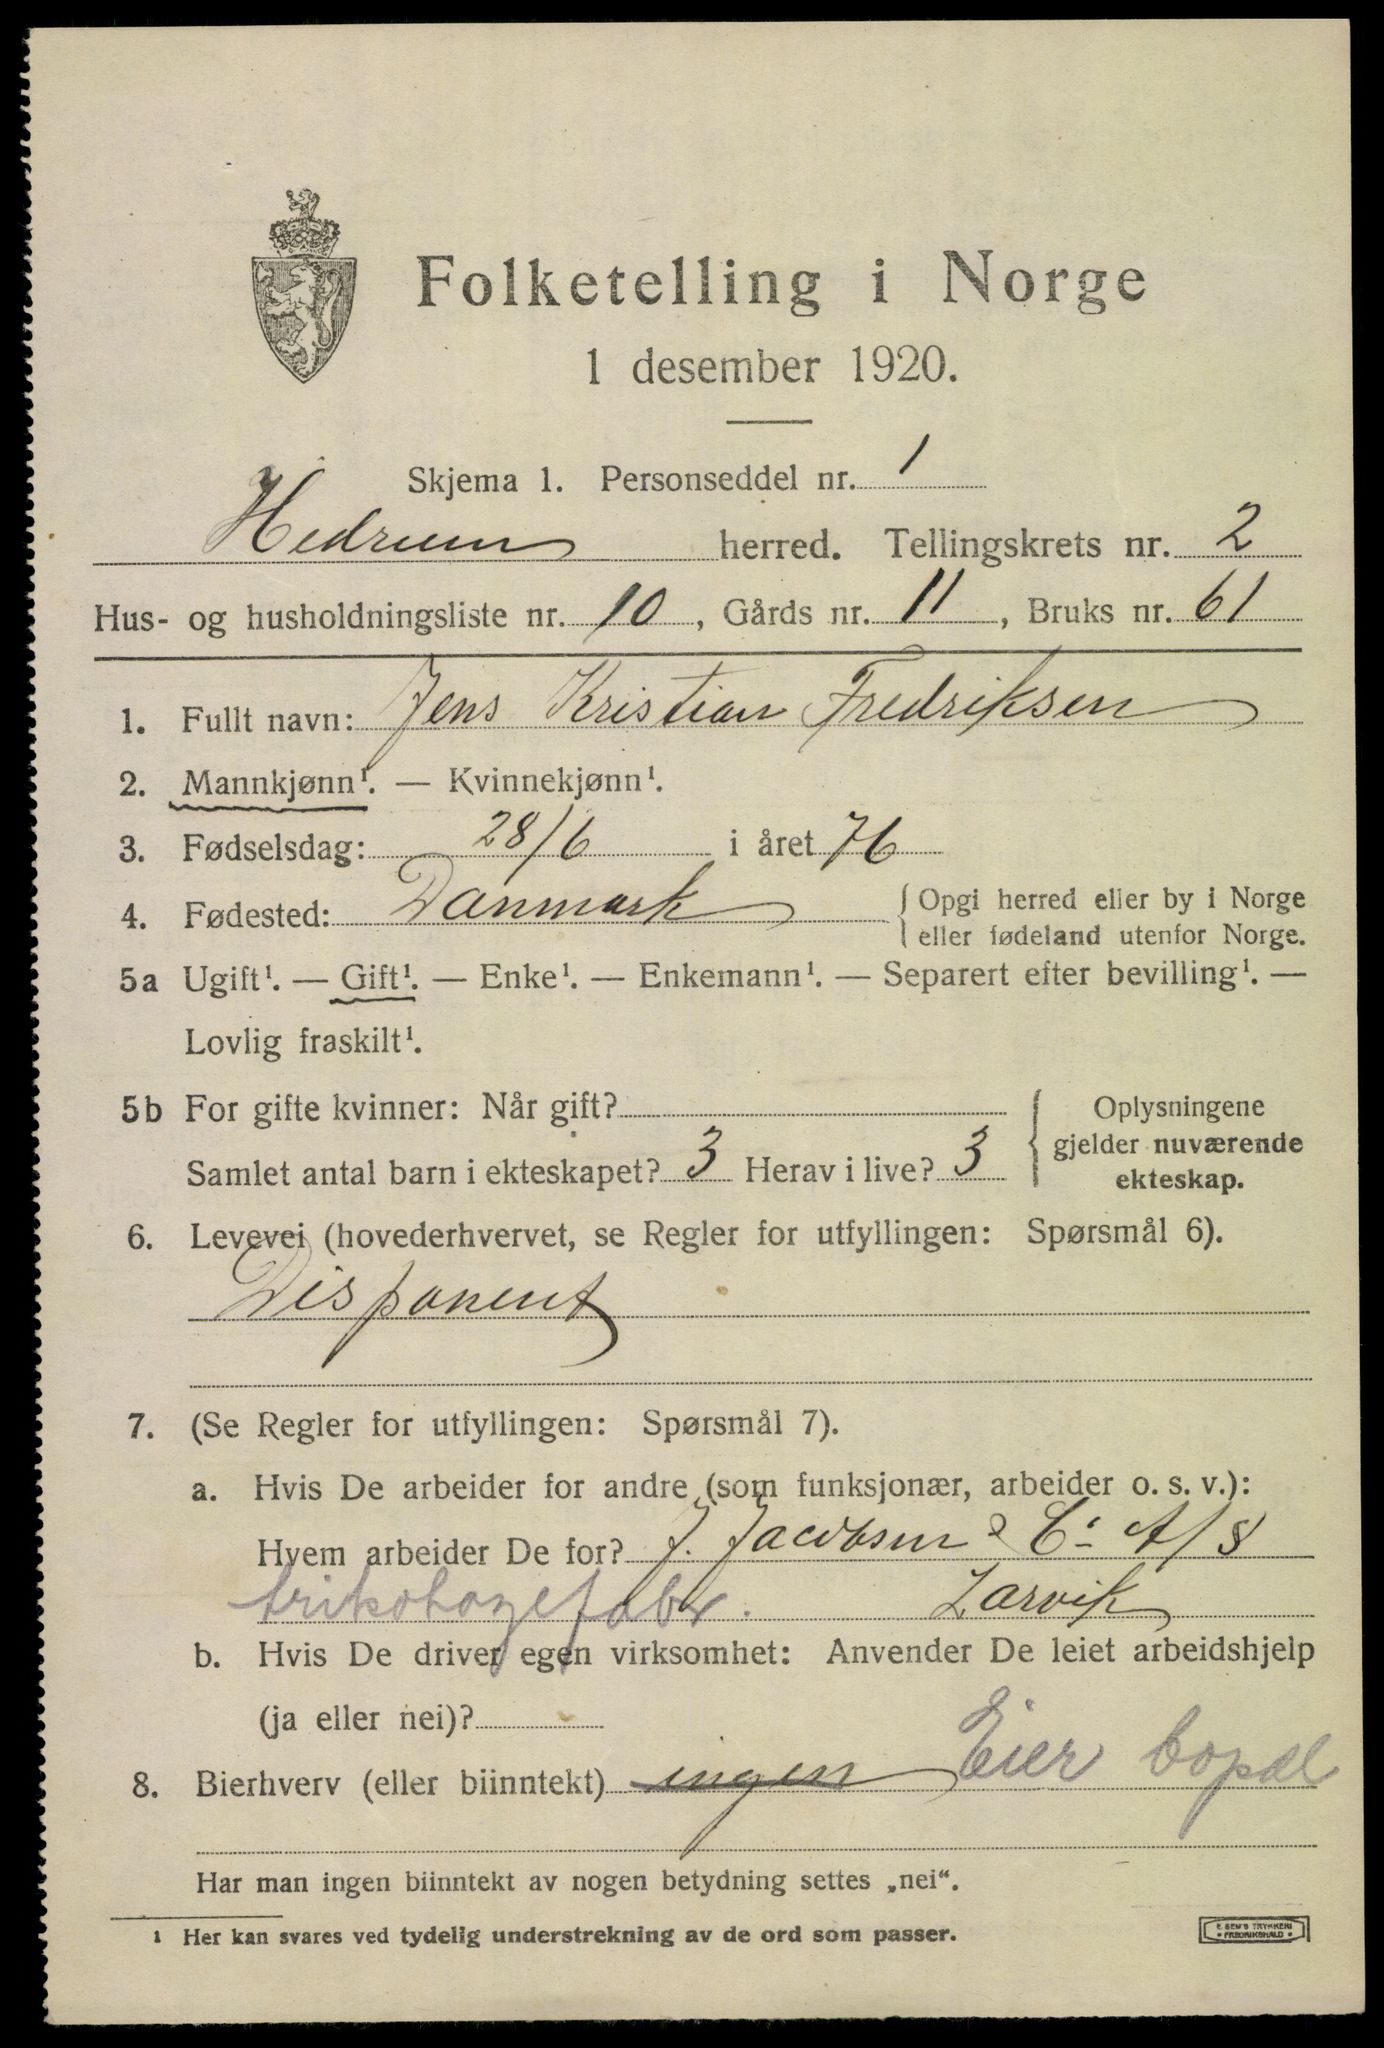 Folketelling i Norge
1 desember 1920.
Skjema 1. Personseddel nr. 1
Hedrum herred. Tellingskrets nr. 2
Hus- og husholdningsliste nr. 10, Gårds nr. 11, Bruks nr. 61
1. Fullt navn: Jens Kristian Fredriksen
2. Mannkjønn¹. — Kvinnekjønn¹.
3. Fødselsdag: 28/6 i året 76
4. Fødested: Danmark { Opgi herred eller by i Norge
eller fødeland utenfor Norge.
5a Ugift¹. — Gift¹. — Enke¹. — Enkemann¹. — Separert efter bevilling¹. —
Lovlig fraskilt¹.
5b For gifte kvinner: Når gift?
Samlet antal barn i ekteskapet? 3 Herav i live? 3
Oplysningene
gjelder nuværende
ekteskap.
6. Levevei (hovederhvervet, se Regler for utfyllingen: Spørsmål 6).
Disponent
7. (Se Regler for utfyllingen: Spørsmål 7).
a. Hvis De arbeider for andre (som funksjonær, arbeider o. s. v.):
Hvem arbeider De for? J. Jacobsen & Co A/S
trikotagefabr. Larvik
b. Hvis De driver egen virksomhet: Anvender De leiet arbeidshjelp
(ja eller nei)?
8. Bierhverv (eller biinntekt) ingen Eier bopæl
Har man ingen biinntekt av nogen betydning settes „nei“.
¹ Her kan svares ved tydelig understrekning av de ord som passer.
E. SEM'S TRYKKERI
• FREDRIKSHALD •